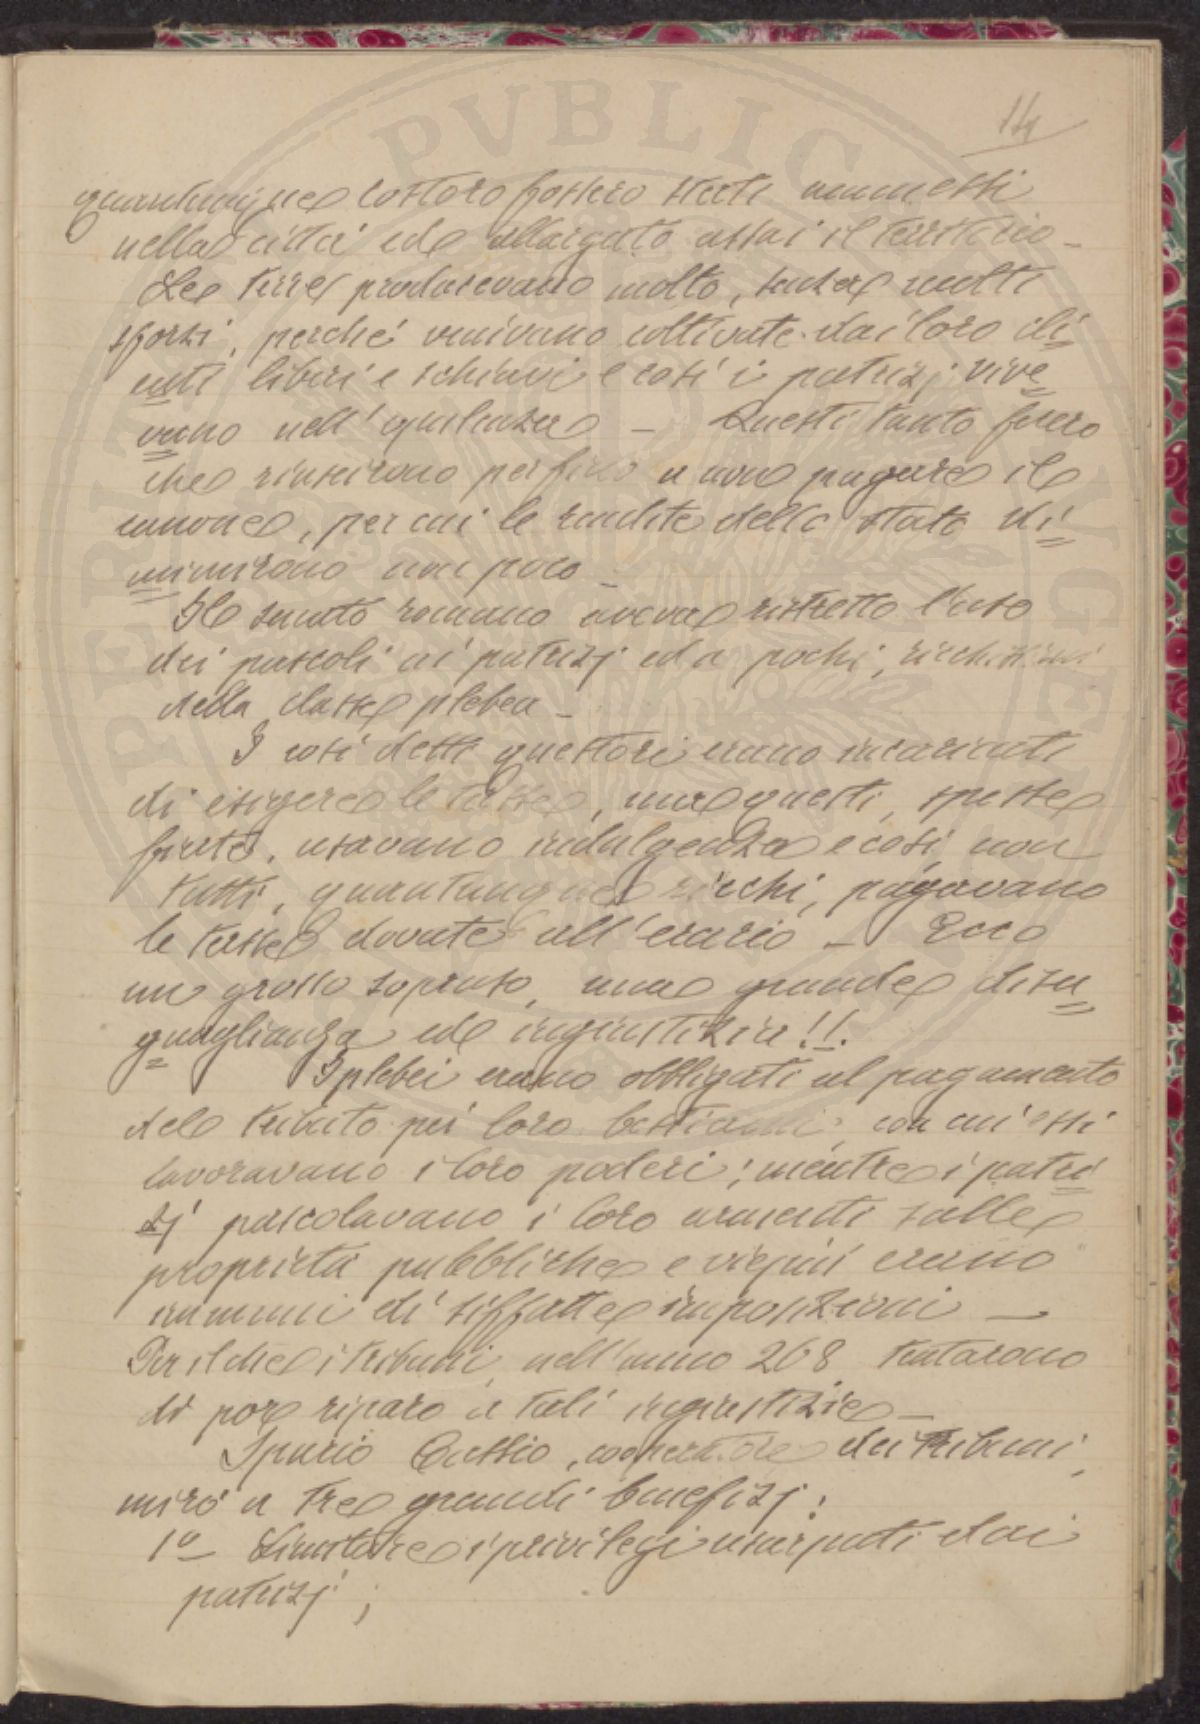 14
quantunque costoro fossero stati ammessi
nella città ed allargato assai il territorio –
Le terre producevano molto, senza molti
sforzi, perché venivano coltivate dai loro cli
enti liberi e schiavi e così i patrizj vive
vano nell'opulenza – Questi tanto fecero
che riuscirono perfino a non pagare il
canone, per cui le rendite dello Stato di
minuirono non poco –
Il senato romano aveva ristretto l'uso
dei pascoli ai patrizj ed a pochi, ricchissimi
della classe plebea –
I così detti questori erano incaricati
di esigere le tasse, ma questi, spesse
fiate, usavano indulgenza e così, non
tutti, quantunque ricchi, pagavano
le tasse dovute all'erario – Ecco
un grosso sopruso, una grande disu
guaglianza ed ingiustizia!!.
I plebei erano obbligati al pagamento
del tributo pei loro bestiami, con cui essi
lavoravano i loro poderi; mentre i patri
zj pascolavano i loro armenti sulle
proprietà pubbliche e vieppiù erano
immuni di siffatte imposizioni –
Per il che i tribuni, nell'anno 268 tentarono
di pore riparo a tali ingiustizie –
Spurio Cassio, cooperatore dei tribuni,
mirò a tre grandi benefizj:
1º – Limitare i privilegi usurpati dai
patrizj;
PVBLIC